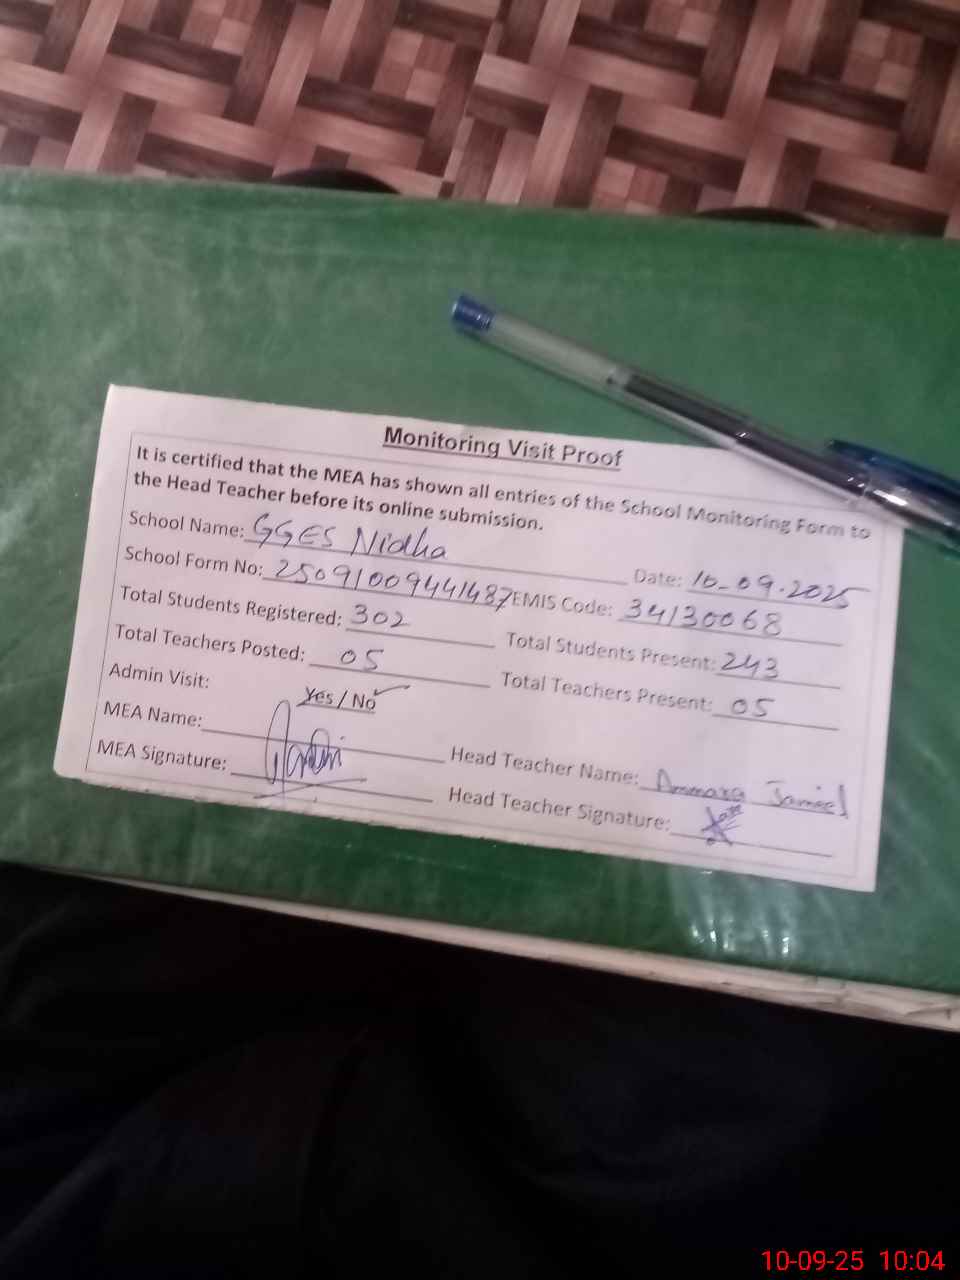 Monitoring Visit Proof
It is certified that the MEA has shown all entries of the School Monitoring Form to
the Head Teacher before its online submission.
School Name: GGES Nidha Date: 10-09-2025
School Form No: 25091009441487 EMIS Code: 34130068
Total Students Registered: 302 Total Students Present: 243
Total Teachers Posted: 05 Total Teachers Present: 05
Admin Visit: Yes / No
MEA Name: Head Teacher Name: Ammara Jameel
MEA Signature: Head Teacher Signature:
10-09-25 10:04